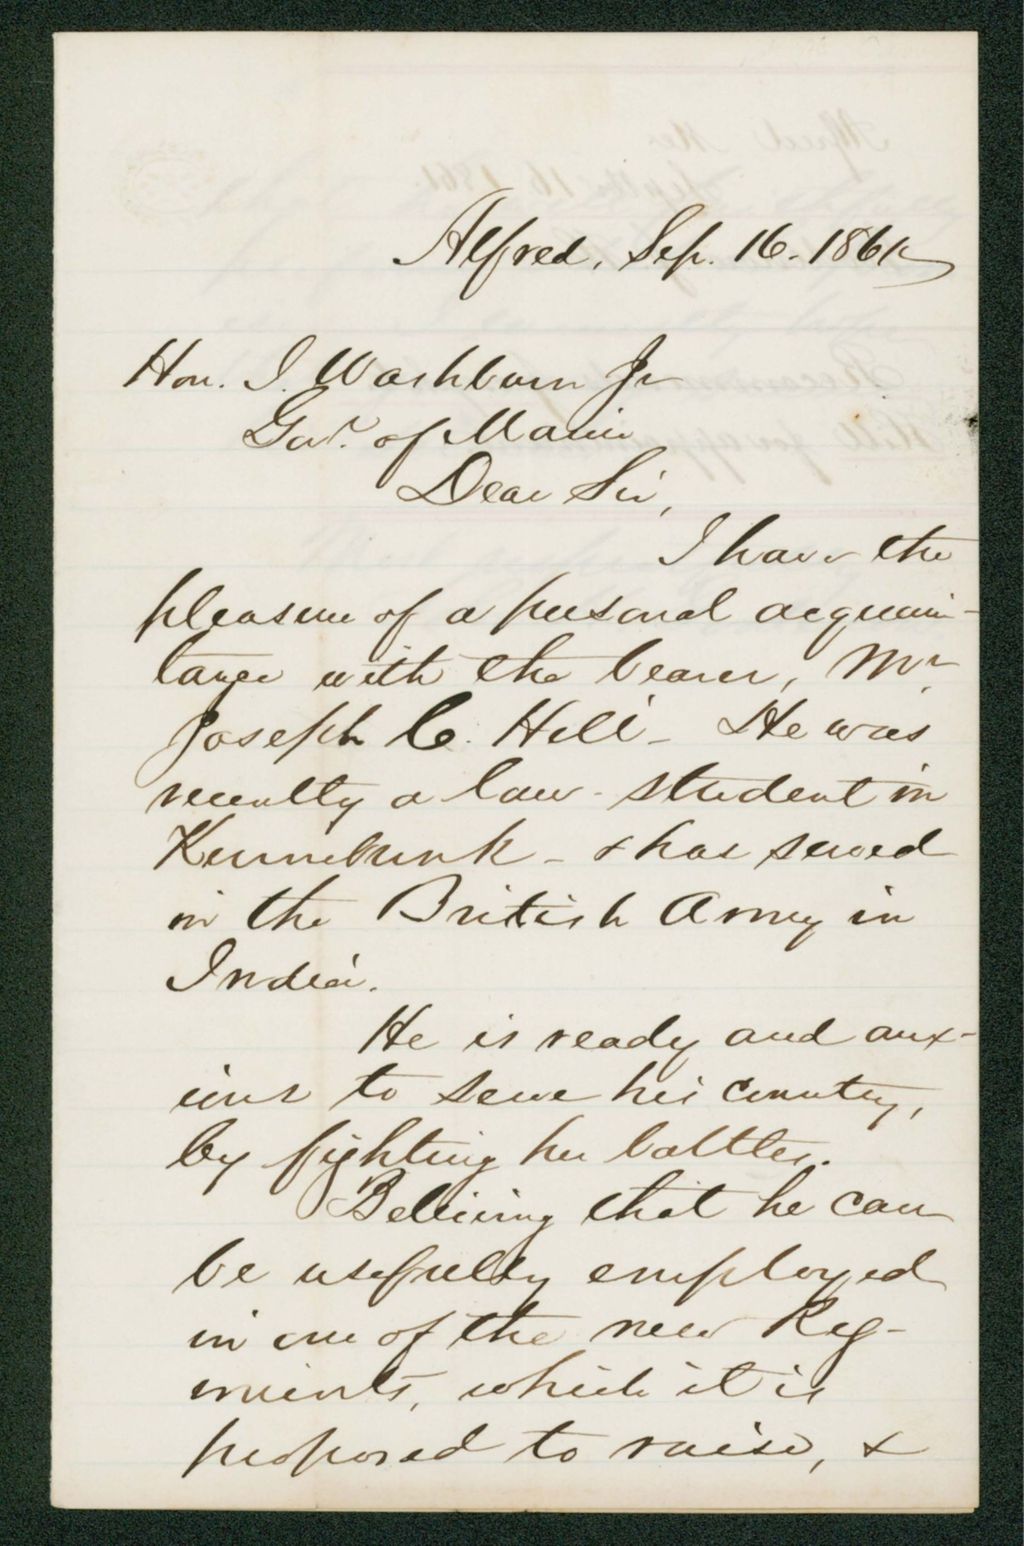 Alfred, Sep. 16. 1861
Hon. I. Washburn Jr
Govr. of Maine
Dear Sir,
I have the
pleasure of a personal acquain-
tance with the bearer, Mr.
Joseph C. Hill - He was
recently a law - student in
Kennebunk - & has served
in the British Army in
India.
He is ready and anx-
ious to serve his country,
by fighting her battles.
Believing that he can
be usefully employed
in one of the new Reg-
iments, which it is
proposed to raise, &